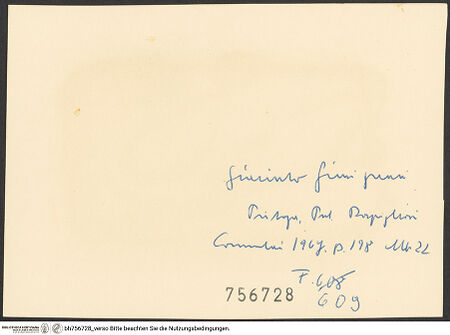 Giacinto Gimignani
Pistoia, Pal. Rospigliosi
Commentari 1967, p. 198 Abb. 22
F. 608
609
756728
bh756728_verso Bitte beachten Sie die Nutzungsbedingungen.